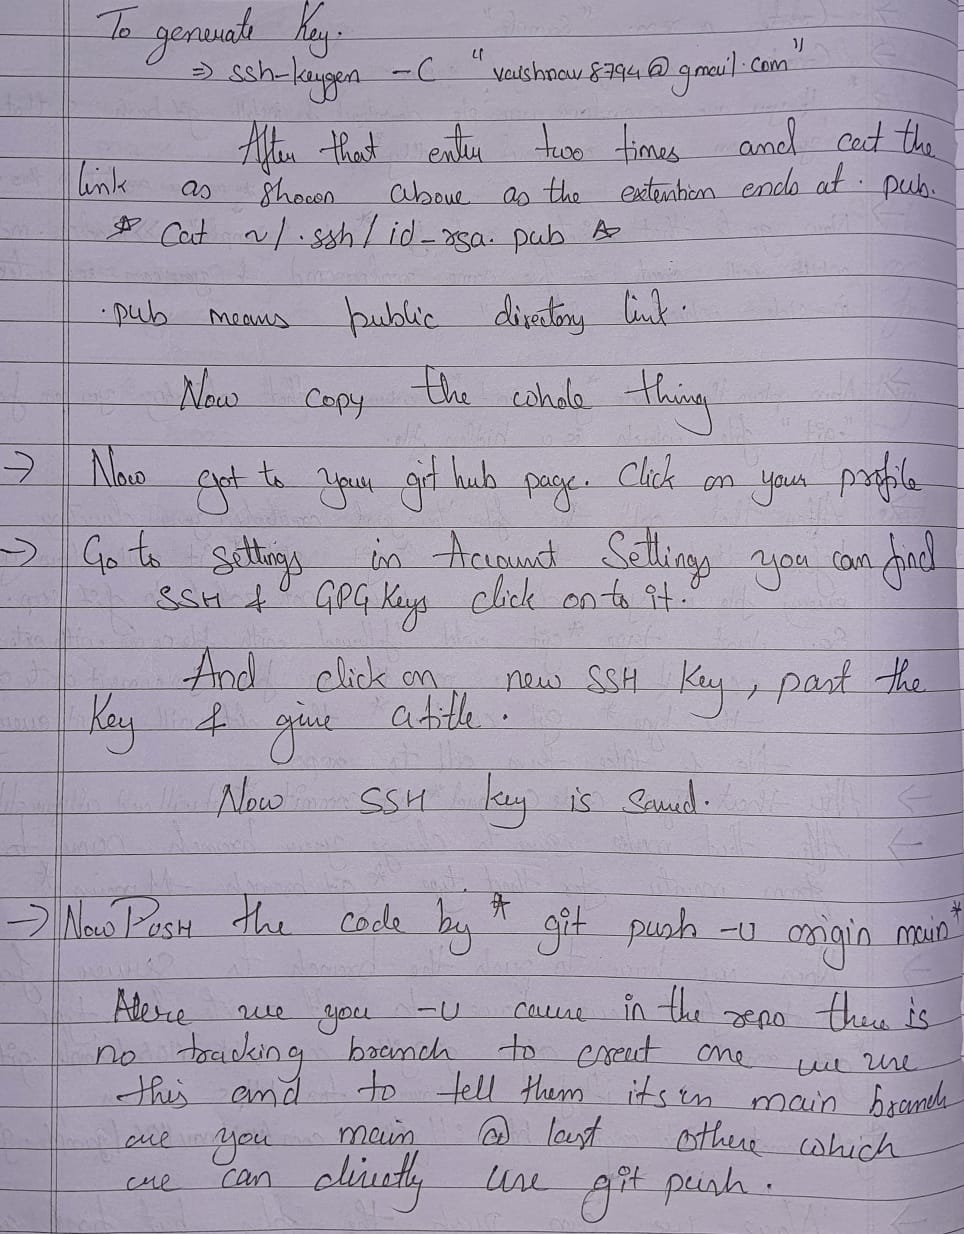 To generate Key.
⇒ ssh-keygen -C "vaishnaw8794@gmail.com"
After that enter two times and cat the
link as shown above as the extention ends at .pub.
☆ Cat ~/.ssh/id_rsa.pub ☆
.pub means public directory link.
Now copy the whole thing
→ Now got to your git hub page. Click on your profile
→ Go to settings in Account Settings you can find
SSH & GPG Keys click on to it.
And click on new SSH Key, past the
Key & give a title.
Now SSH key is saved.
→ Now PUSH the code by * git push -u origin main *
Here we you -u cause in the repo there is
no tracking branch to creat one we use
this and to tell them its in main branch
we you main @ last othere which
we can directly use git push.